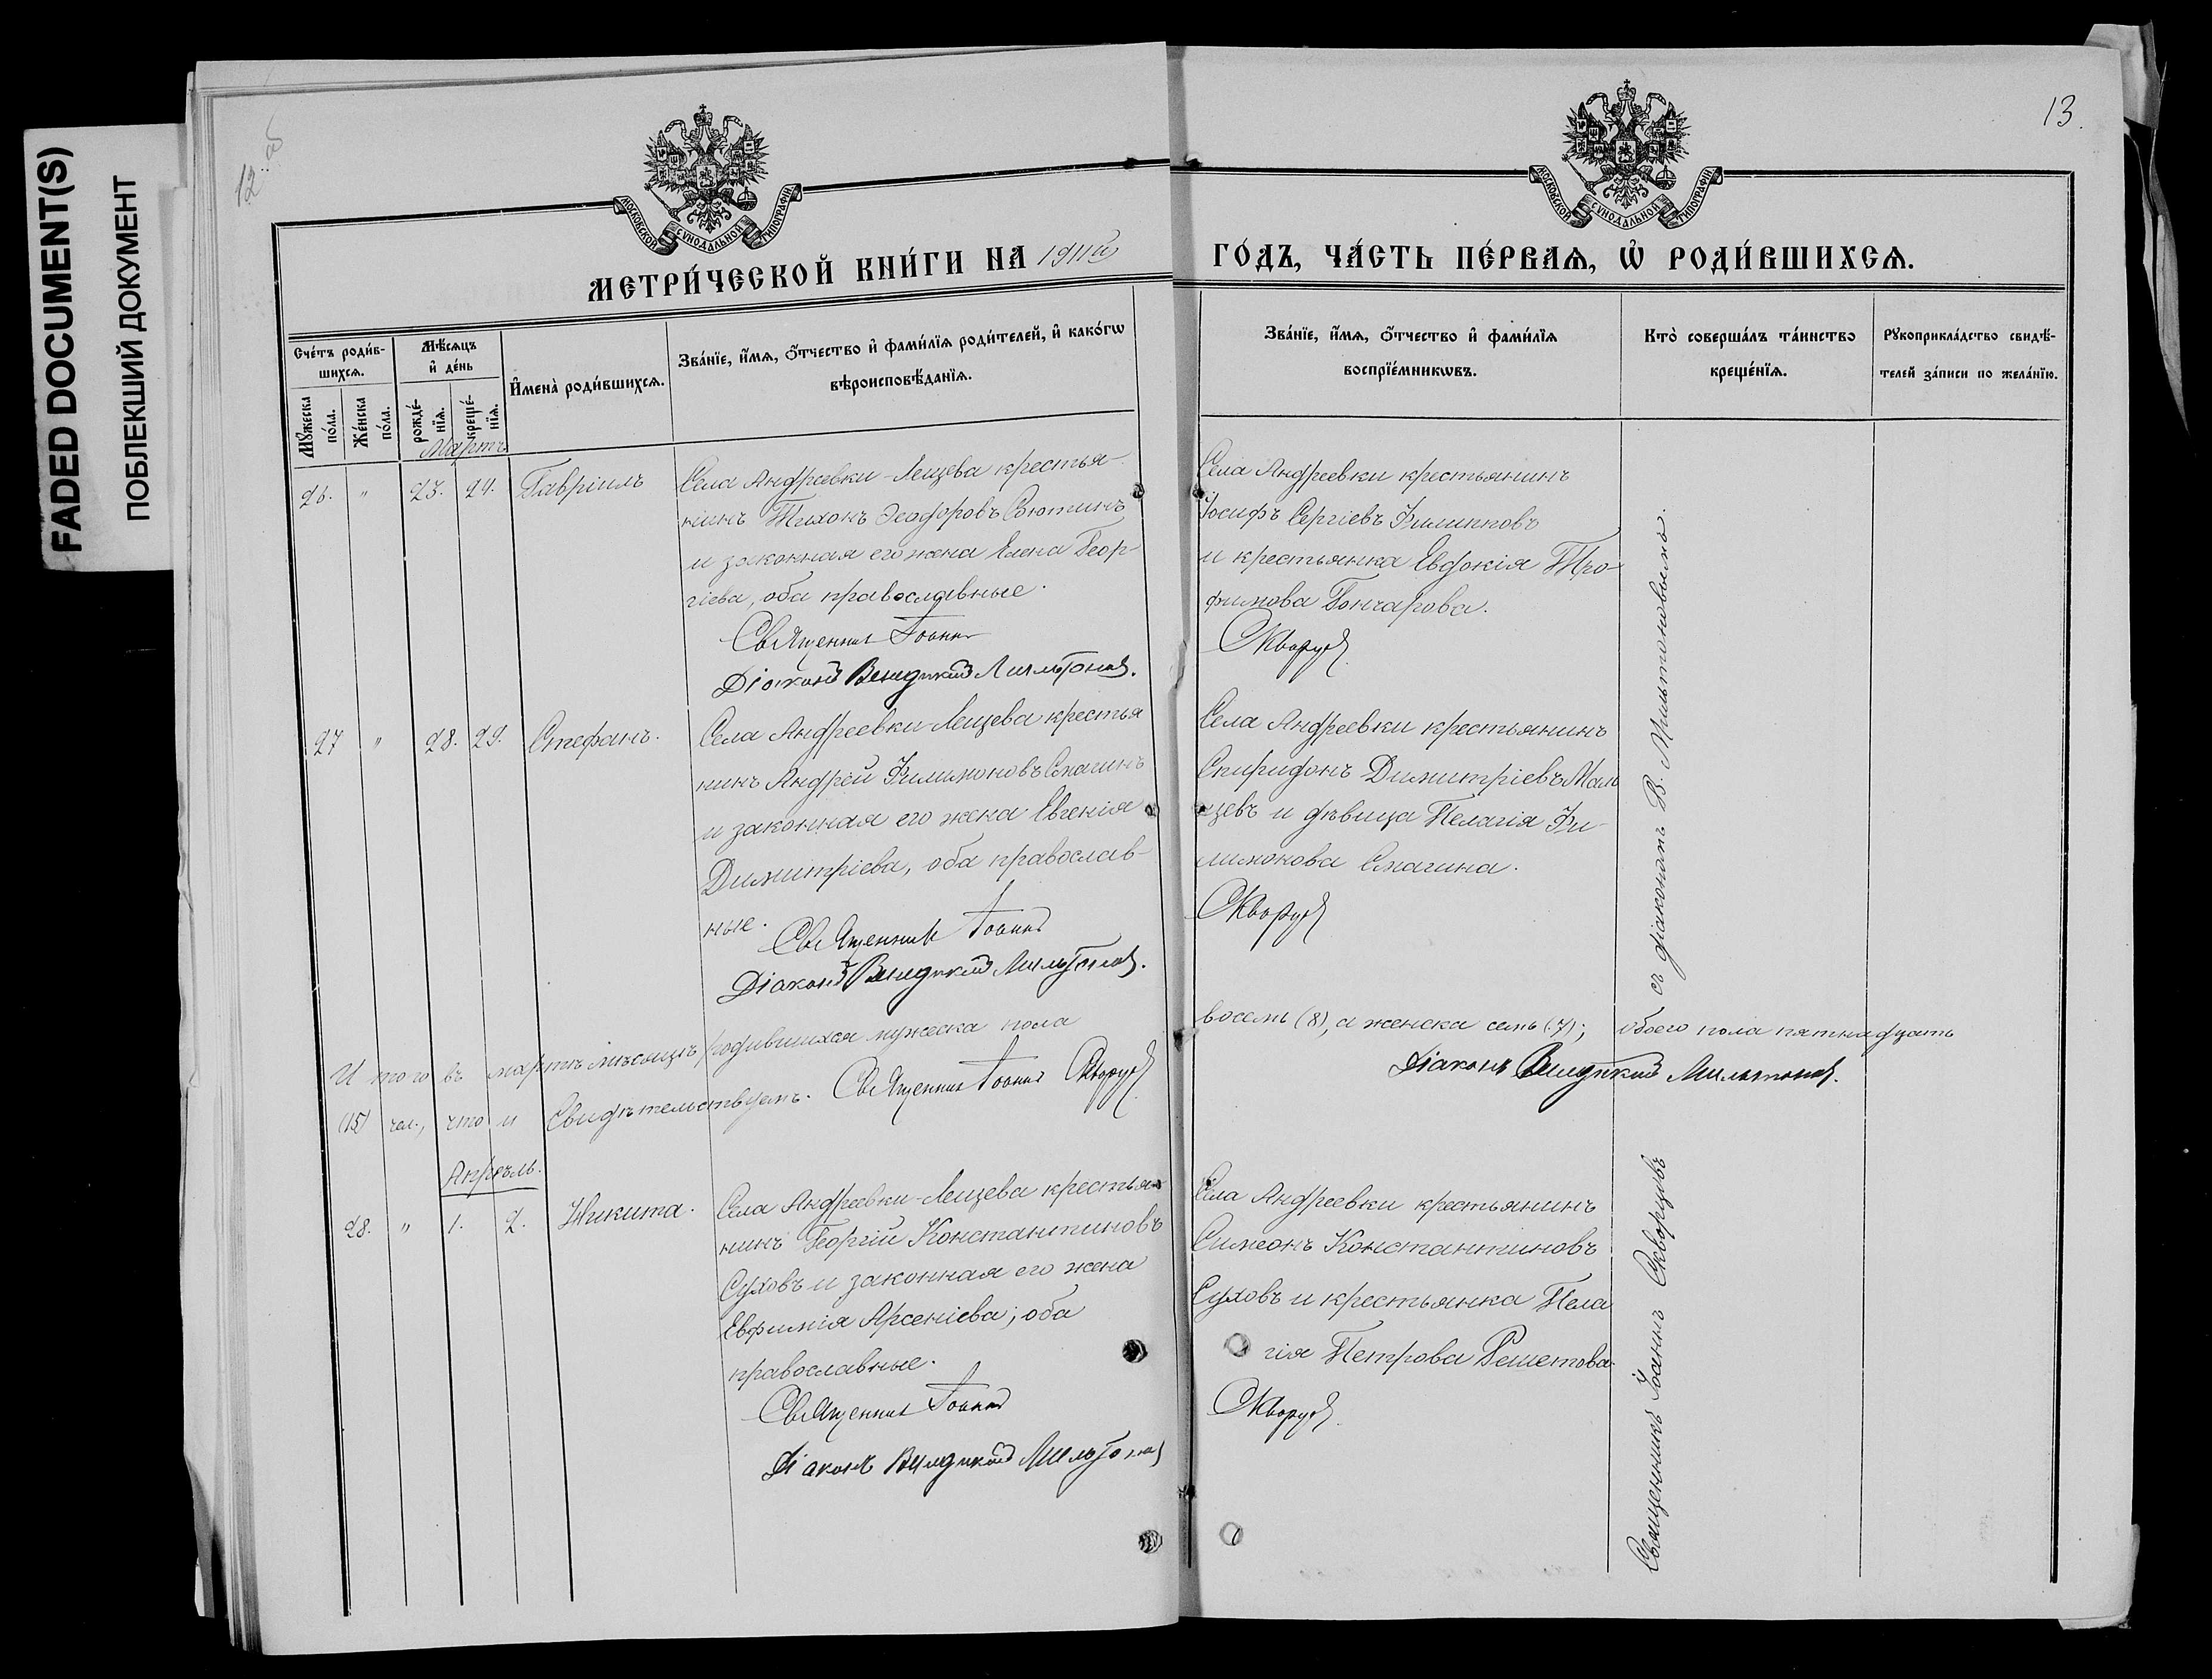 FADED DOCUMENT(S)
ПОБЛЕКШИЙ ДОКУМЕНТ
12 об
13.
МОСКОВСКОЙ СѴНОДАЛЬНОЙ ТИПОГРАФІИ
МОСКОВСКОЙ СѴНОДАЛЬНОЙ ТИПОГРАФІИ
МЕТРИ́ЧЕСКОЙ КНИ́ГИ НА 1911й ГО́ДЪ, ЧА́СТЬ ПЕ́РВАѦ, Ѡ҆ РОДИ́ВШИХСѦ.
Сче́тъ роди́в-
шихсѧ.
Мꙋ́жеска по́ла.
Же́нска по́ла.
Мѣ́сѧцъ
и҆ де́нь
рожде́-
нїѧ.
креще́-
нїѧ.
И҆мена̀ роди́вшихсѧ.
Зва́нїе, и҆́мѧ, ѻ҆́тчество и҆ фами́лїѧ роди́телей, и҆ како́гѡ
вѣроисповѣ́данїѧ.
Зва́нїе, и҆́мѧ, ѻ҆́тчество и҆ фами́лїѧ
воспрїе́мникѡвъ.
Кто̀ соверша́лъ та́инство
креще́нїѧ.
Рꙋкоприкла́дство свидѣ́-
телей за́писи по жела́нїю.
Мартъ
26. " 23. 24. Гавріилъ
Села Андреевки-Лещева крестья-
нинъ Тихонъ Ѳеодоровъ Сютинъ
и законная его жена Елена Геор-
гіева, оба православные.
Священникъ Іоаннъ
Діаконъ Венедиктъ Мильтоновъ.
Села Андреевки крестьянинъ
Іосифъ Сергіевъ Филипповъ
и крестьянка Евдокія Тро-
фимова Гончарова.
Скворцовъ
27 " 28. 29. Стефанъ.
Села Андреевки-Лещева крестья
нинъ Андрей Филимоновъ Смагинъ
и законная его жена Евгенія
Димитріева, оба православ-
ные.
Священникъ Іоаннъ
Діаконъ Венедиктъ Мильтоновъ.
Села Андреевки крестьянинъ
Спиридонъ Димитріевъ Маль
цевъ и дѣвица Пелагія Фи-
лимонова Смагина.
Скворцовъ
И того въ мартѣ мѣсяцѣ родившихся мужеска пола восемь (8), а женска семь (7); обоего пола пятнадцать
(15) чел., что и Свидѣтельствуемъ. Священникъ Іоаннъ Скворцовъ Діаконъ Венедиктъ Мильтоновъ.
Апрѣль.
28. " 1. 2. Никита.
Села Андреевки-Лещева крестья-
нинъ Георгій Константиновъ
Суховъ и законная его жена
Евфимія Арсеніева; оба
православные.
Священникъ Іоаннъ
Діаконъ Венедиктъ Мильтоновъ
Села Андреевки крестьянинъ
Симеонъ Константиновъ
Суховъ и крестьянка Пела
гія Петрова Решетова.
Скворцовъ
Священникъ Іоаннъ Скворцовъ съ діаконамъ В. Мильтоновымъ.